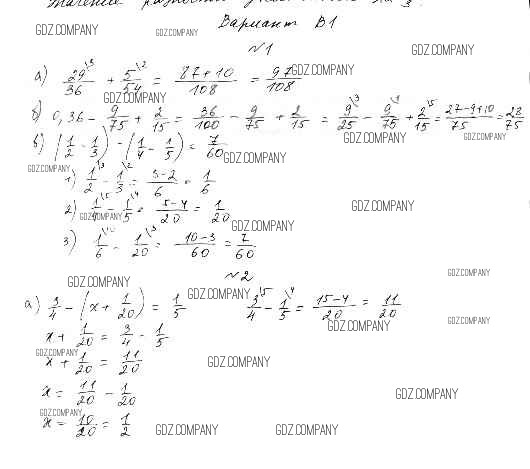 значение разности
GDZ.COMPANY GDZ.COMPANY Вариант В1
№1 GDZ.COMPANY
а) 29\3/36 + 5\2/54 = 87+10/108 = 97/108 GDZ.COMPANY
GDZ.COMPANY
б) 0,36 - 9/75 + 2/15 = 36/100 - 9/75 + 2/15 = 9\3/25 - 9\1/75 + 2\5/15 = 27-9+10/75 = 28/75
GDZ.COMPANY GDZ.COMPANY
в) (1/2 - 1/3) - (1/4 - 1/5) = 7/60 GDZ.COMPANY
GDZ.COMPANY
1) 1\3/2 - 1\2/3 = 3-2/6 = 1/6
2) 1\5/4 - 1\4/5 = 5-4/20 = 1/20 GDZ.COMPANY
GDZ.COMPANY GDZ.COMPANY
3) 1\10/6 - 1\3/20 = 10-3/60 = 7/60
№2 GDZ.COMPANY
GDZ.COMPANY GDZ.COMPANY
а) 3/4 - (x + 1/20) = 1/5 3\5/4 - 1\4/5 = 15-4/20 = 11/20
GDZ.COMPANY GDZ.COMPANY
x + 1/20 = 3/4 - 1/5
GDZ.COMPANY
x + 1/20 = 11/20 GDZ.COMPANY
x = 11/20 - 1/20 GDZ.COMPANY
GDZ.COMPANY
x = 10/20 = 1/2 GDZ.COMPANY GDZ.COMPANY